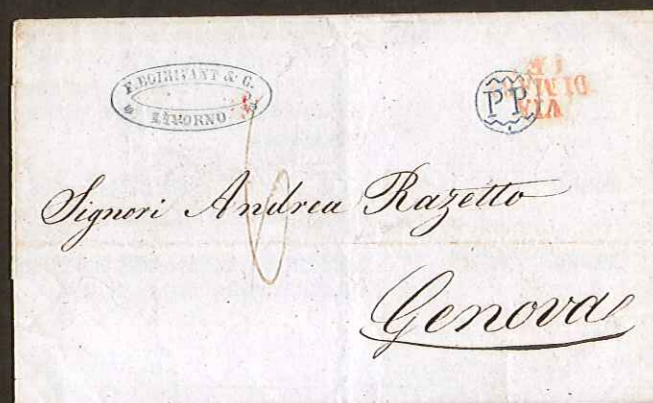 & C.
LIVORNO
PP
VIA
DI MARE
Signori Andrea Razetto
Genova